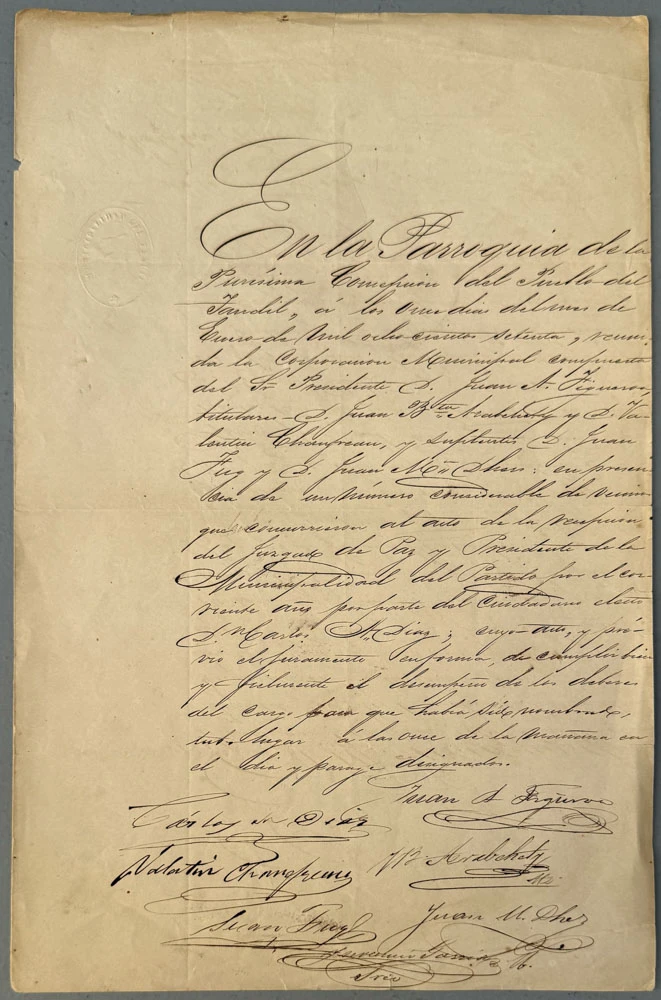 En la Parroquia de la
Purísima Concepcion del Pueblo del
Tandil, á los once dias del mes de
Enero de Mil ochocientos setenta, reuni-
da la Corporacion Municipal compuesta
del Sr Presidente D. Juan A. Figueroa
titulares - D. Juan Bta Arabehety y D. Va-
lentin Chanfreau, y Suplentes D. Juan
Fugl y D. Juan Mª Dhers: en presen-
cia de un número considerable de vecinos
que concurrieron al acto de la recepcion
del Juzgado de Paz y Presidente de la
Municipalidad del Partido por el cor-
riente año por parte del ciudadano electo
D. Carlos A. Diaz; cuyo acto, y pré-
vio el juramento en forma, de cumplir bien
y fielmente el desempeño de los deberes
del cargo para que habia sido nombrado,
tubo lugar á las once de la mañana en
el dia y parage designados.
Juan A Figueroa
Cárlos A Diaz
Valentin Chanfreau
J B. Arabehety
Juan Fugl
Juan M. Dhers
Srio